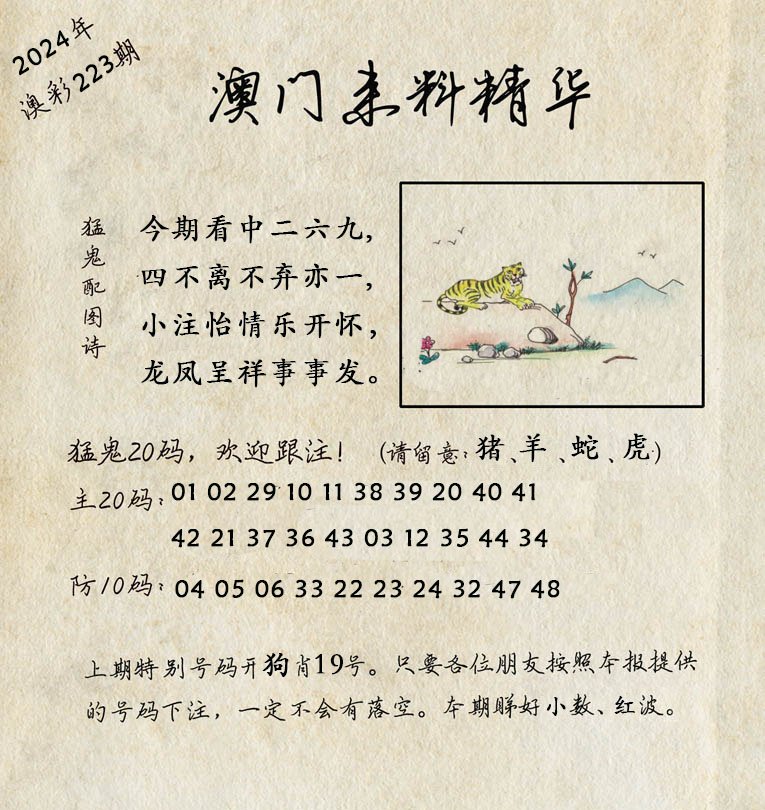 2024年
澳彩223期
澳门来料精华
猛鬼配图诗
今期看中二六九,
四不离不弃亦一,
小注怡情乐开怀,
龙凤呈祥事事发。
猛鬼20码,欢迎跟注! (请留意:猪、羊、蛇、虎)
主20码: 01 02 29 10 11 38 39 20 40 41
42 21 37 36 43 03 12 35 44 34
防10码: 04 05 06 33 22 23 24 32 47 48
上期特别号码开狗肖19号。只要各位朋友按照本报提供
的号码下注,一定不会有落空。本期睇好小数、红波。